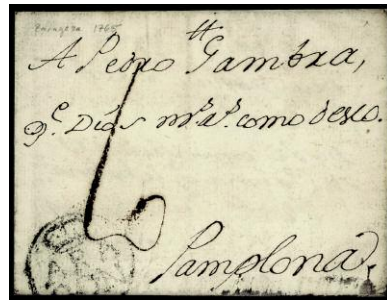 Zaragoza 1765
A Pedro Gambra,
q.e Dios m.s a.s como deseo.
6
Pamplona,